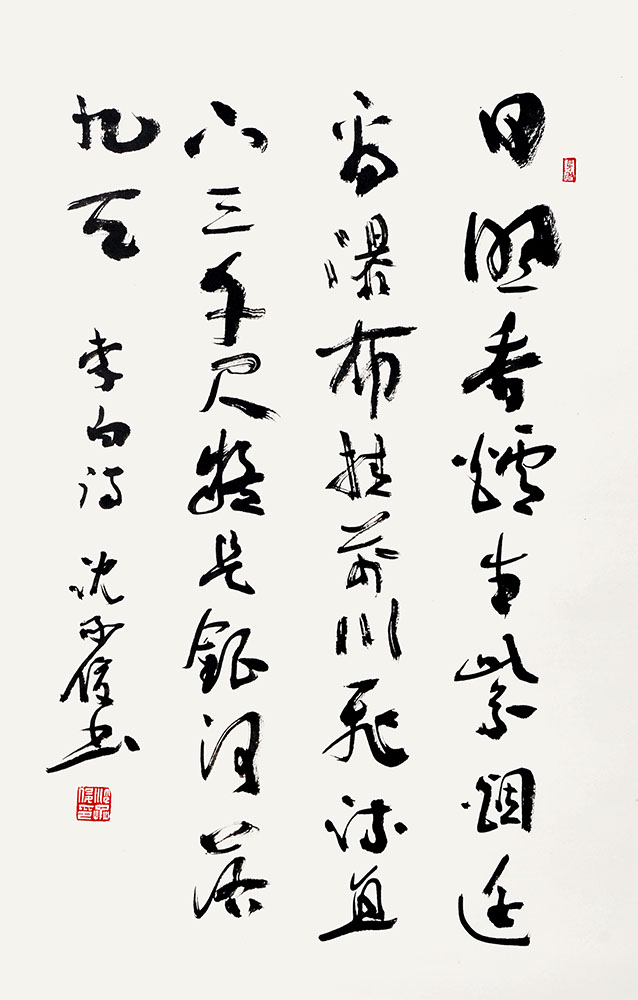 日照香爐生紫烟遥
看瀑布挂前川飛流直
下三千尺疑是銀河落
九天 李白詩 沈